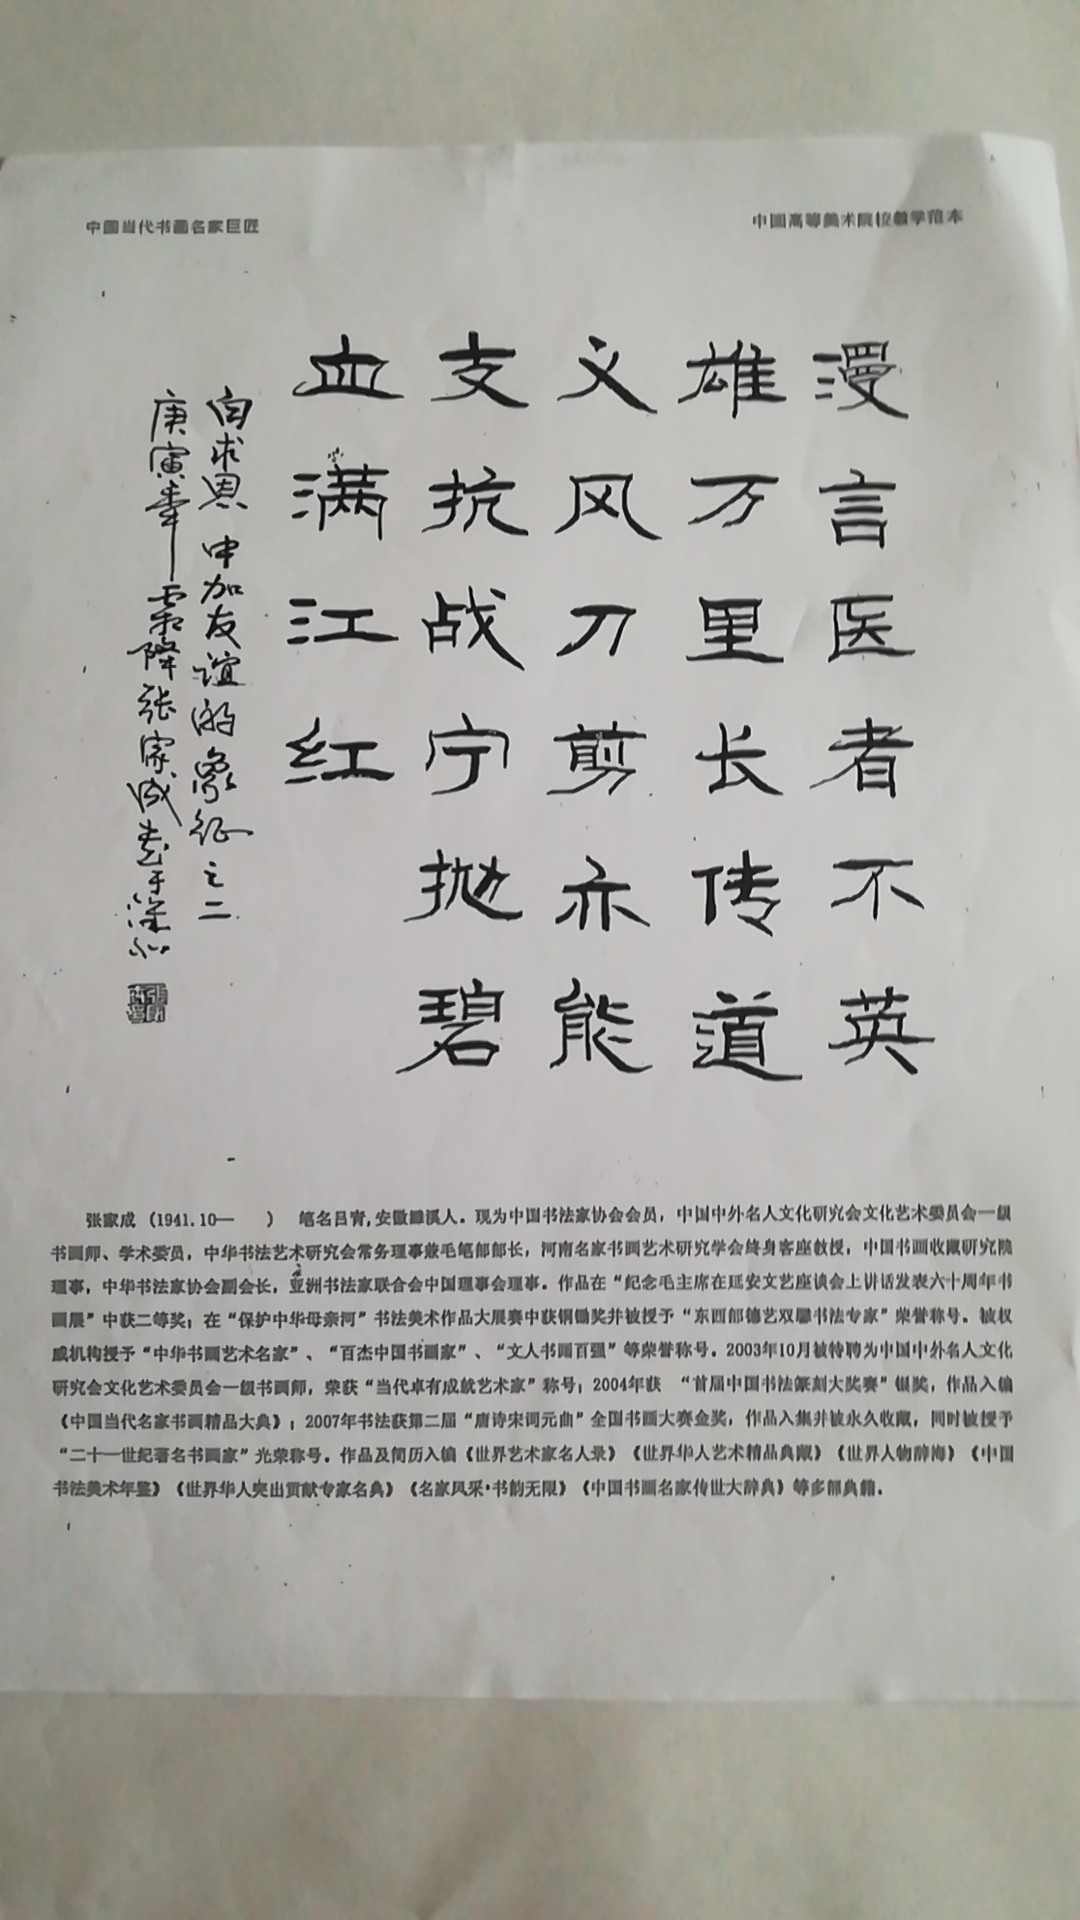 中国当代书画名家巨匠
中国高等美术院校教学范本
漫言医者不英
雄万里长传道
义风刀剪亦能
支抗战宁抛碧
血满江红
白求恩中加友谊的象征之二
庚寅年霜降张家成书于濉溪
张家成（1941.10— ） 笔名吕青，安徽濉溪人。现为中国书法家协会会员，中国中外名人文化研究会文化艺术委员会一级
书画师、学术委员，中华书法艺术研究会常务理事兼毛笔部部长，河南名家书画艺术研究学会终身客座教授，中国书画收藏研究院
理事，中华书法家协会副会长，亚洲书法家联合会中国理事会理事。作品在“纪念毛主席在延安文艺座谈会上讲话发表六十周年书
画展”中获二等奖；在“保护中华母亲河”书法美术作品大展赛中获铜锄奖并被授予“东西部德艺双馨书法专家”荣誉称号。被权
威机构授予“中华书画艺术名家”、“百杰中国书画家”、“文人书画百强”等荣誉称号。2003年10月被特聘为中国中外名人文化
研究会文化艺术委员会一级书画师，荣获“当代卓有成就艺术家”称号；2004年获 “首届中国书法篆刻大奖赛”银奖，作品入编
《中国当代名家书画精品大典》；2007年书法获第二届“唐诗宋词元曲”全国书画大赛金奖，作品入集并被永久收藏，同时被授予
“二十一世纪著名书画家”光荣称号。作品及简历入编《世界艺术家名人录》《世界华人艺术精品典藏》《世界人物辞海》《中国
书法美术年鉴》《世界华人突出贡献专家名典》《名家风采·书韵无限》《中国书画名家传世大辞典》等多部典籍。